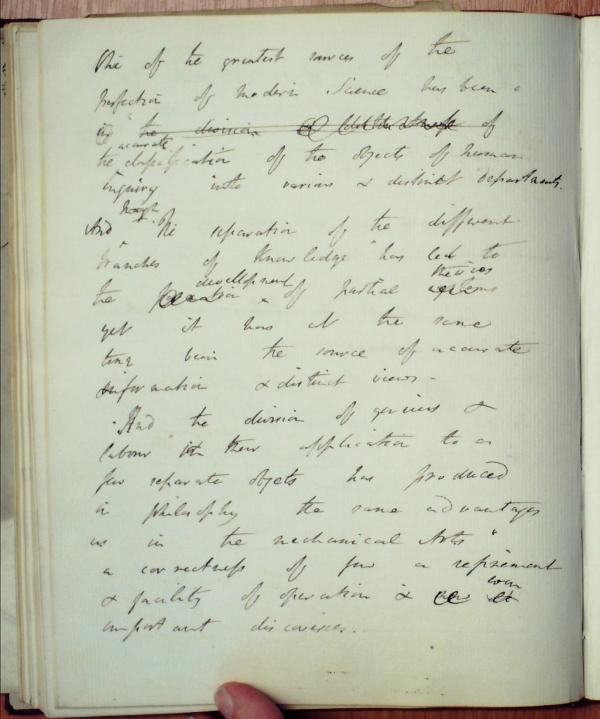 One of the greatest sources of the
perfection of modern Science has been
the division of
accurate
the classification of the objects of human
inquiry into various & distinct departments.
And if the separation of the different
branches of knowledge has led to
development theories
the of partial systems
yet it has at the same
time been the source of accurate
information & distinct views -
And the division of genius &
labour in their application to a
few separate objects has produced
in philosophy the same advantages
as in the mechanical Arts
a correctness of a refinement
& facility of operation &
important discoveries.